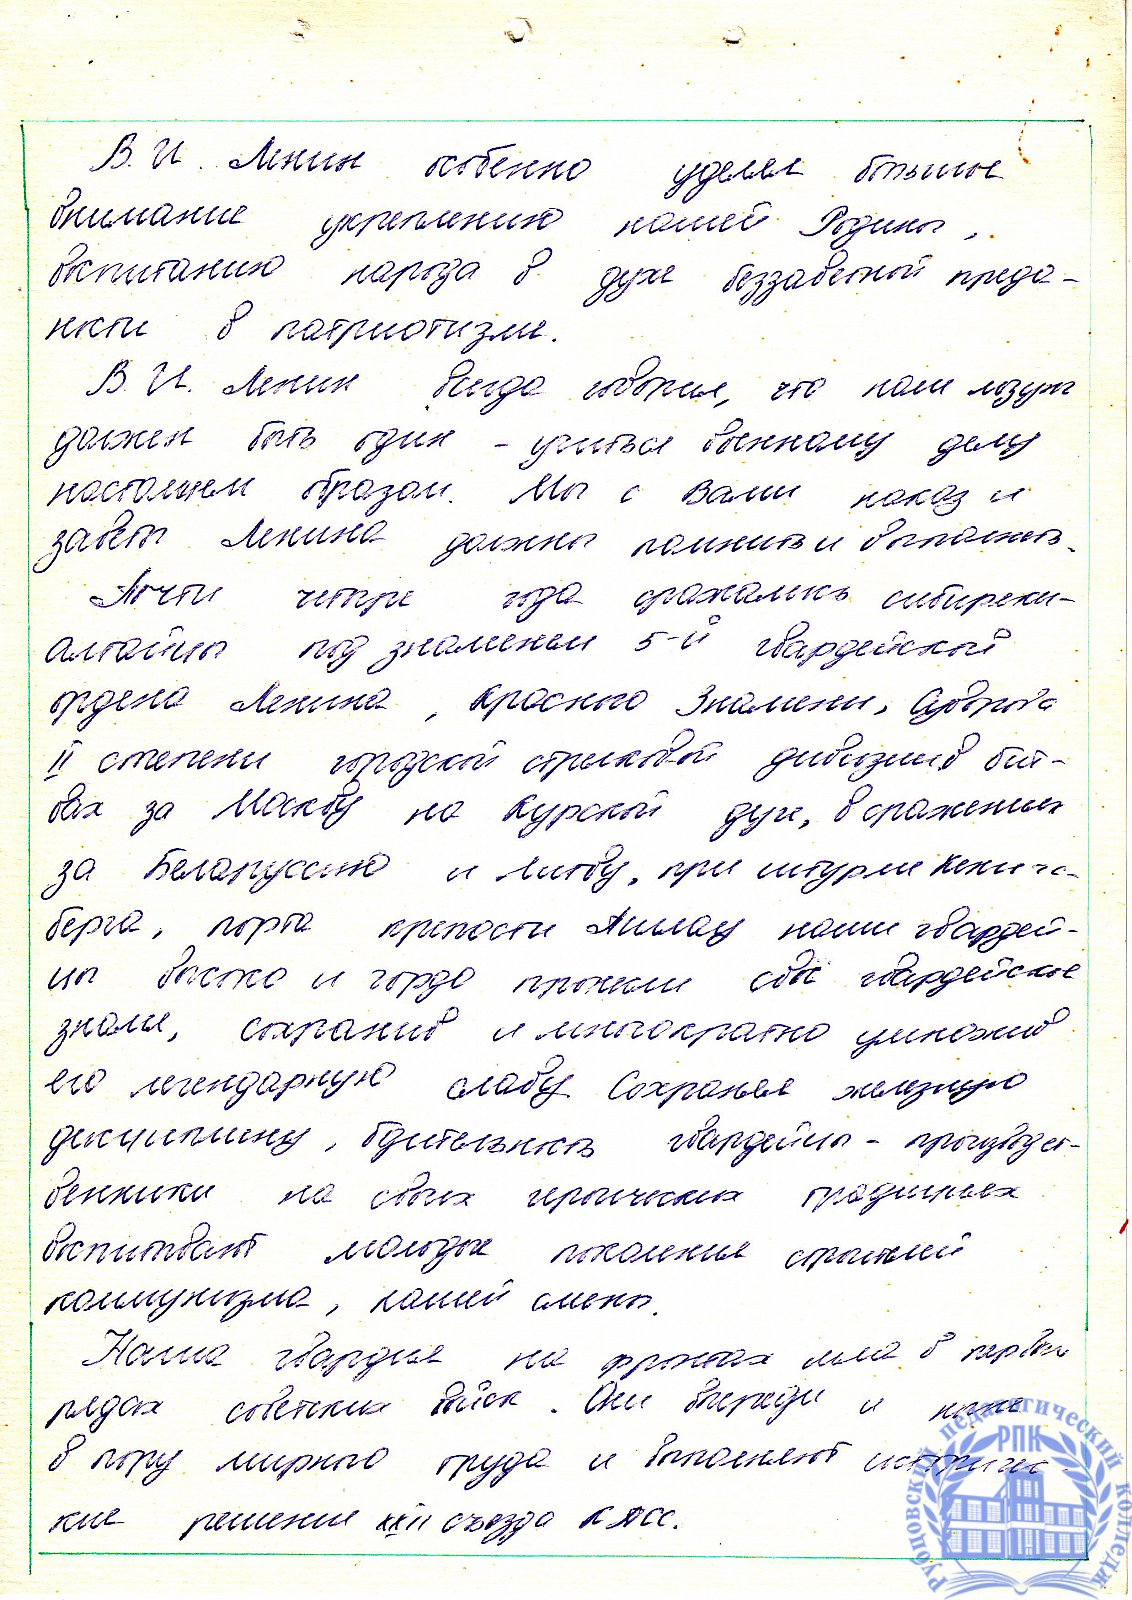 В.И. Ленин особенно уделял большое
внимание укреплению нашей Родины,
воспитанию народа в духе беззаветной преда-
ности в патриотизме.
В.И. Ленин всегда говорил, что наш лозунг
должен быть один - учиться военному делу
настоящем образом. Мы с Вами наказ и
заветы Ленина должны помнить и выполнять.
Почти четыре года сражались сибиряки-
алтайцы под знаменем 5-й гвардейской
ордена Ленина, Красного Знамени, Суворова
II степени городской стрелковой дивизии в бит-
вах за Москву на Курской дуге, в сражениях
за Беларуссию и Литву, при штурме Кенигс-
берга, порта крепости Пиллау наши гвардей-
цы высоко и гордо пронесли своё гвардейское
знамя, сохранив и многократно умножив
его легендарную славу. Сохраняя железную
дисциплину, бдительность гвардейцы - производст-
венники на своих героических традициях
воспитывают молодые поколения строителей
коммунизма, нашей смены.
Наша гвардия на фронтах шла в первых
рядах советских войск. Они впереди и ныне
в пору мирного труда и выполняют историчес
кие решения XXII съезда КПСС.
Рубцовский педагогический колледж
РПК